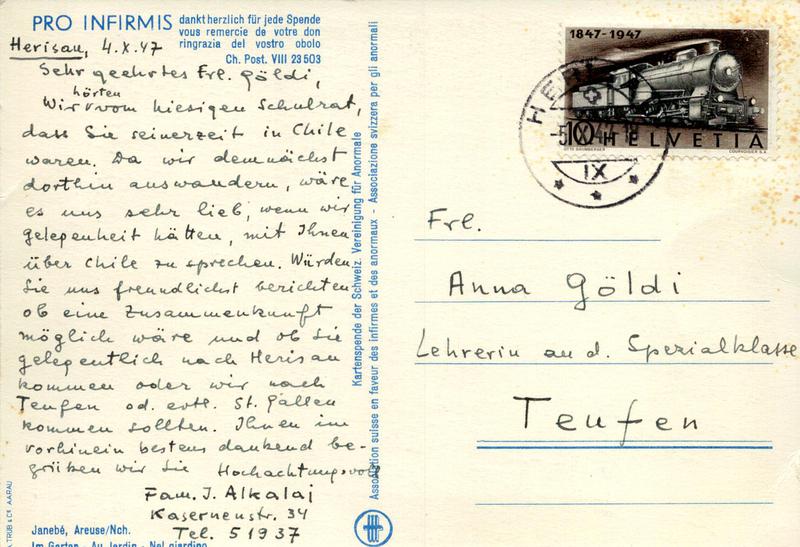 PRO INFIRMIS
dankt herzlich für jede Spende
vous remercie de votre don
ringrazia del vostro obolo
Ch. Post. VIII 23503
Herisau, 4.X.47
Sehr geehrtes Frl. Göldi,
hörten
Wir vom hiesigen Schulrat,
dass Sie seinerzeit in Chile
waren. Da wir demnächst
dorthin auswandern, wäre
es uns sehr lieb, wenn wir
gelegenheit hätten, mit Ihnen
über Chile zu sprechen. Würden
Sie uns freundlichst berichten
ob eine Zusammenkunft
möglich wäre und ob Sie
gelegentlich nach Herisau
kommen oder wir nach
Teufen od. evtl. St. Gallen
kommen sollten. Ihnen im
vorhinein bestens dankend be-
grüßen wir Sie Hochachtungsvoll
Fam. J. Alkalaj
Kasernenstr. 34
Tel. 51937
Janebé, Areuse/Nch.
Im Garten - Au Jardin - Nel giardino
A. TRÜB & CIE. AARAU
Kartenspende der Schweiz. Vereinigung für Anormale
Association suisse en faveur des infirmes et des anormaux - Associazione svizzera per gli anormali
1847-1947
10
HELVETIA
COURVOISIER S.A.
HER
IX
Frl.
Anna Göldi
Lehrerin an d. Spezialklasse
Teufen